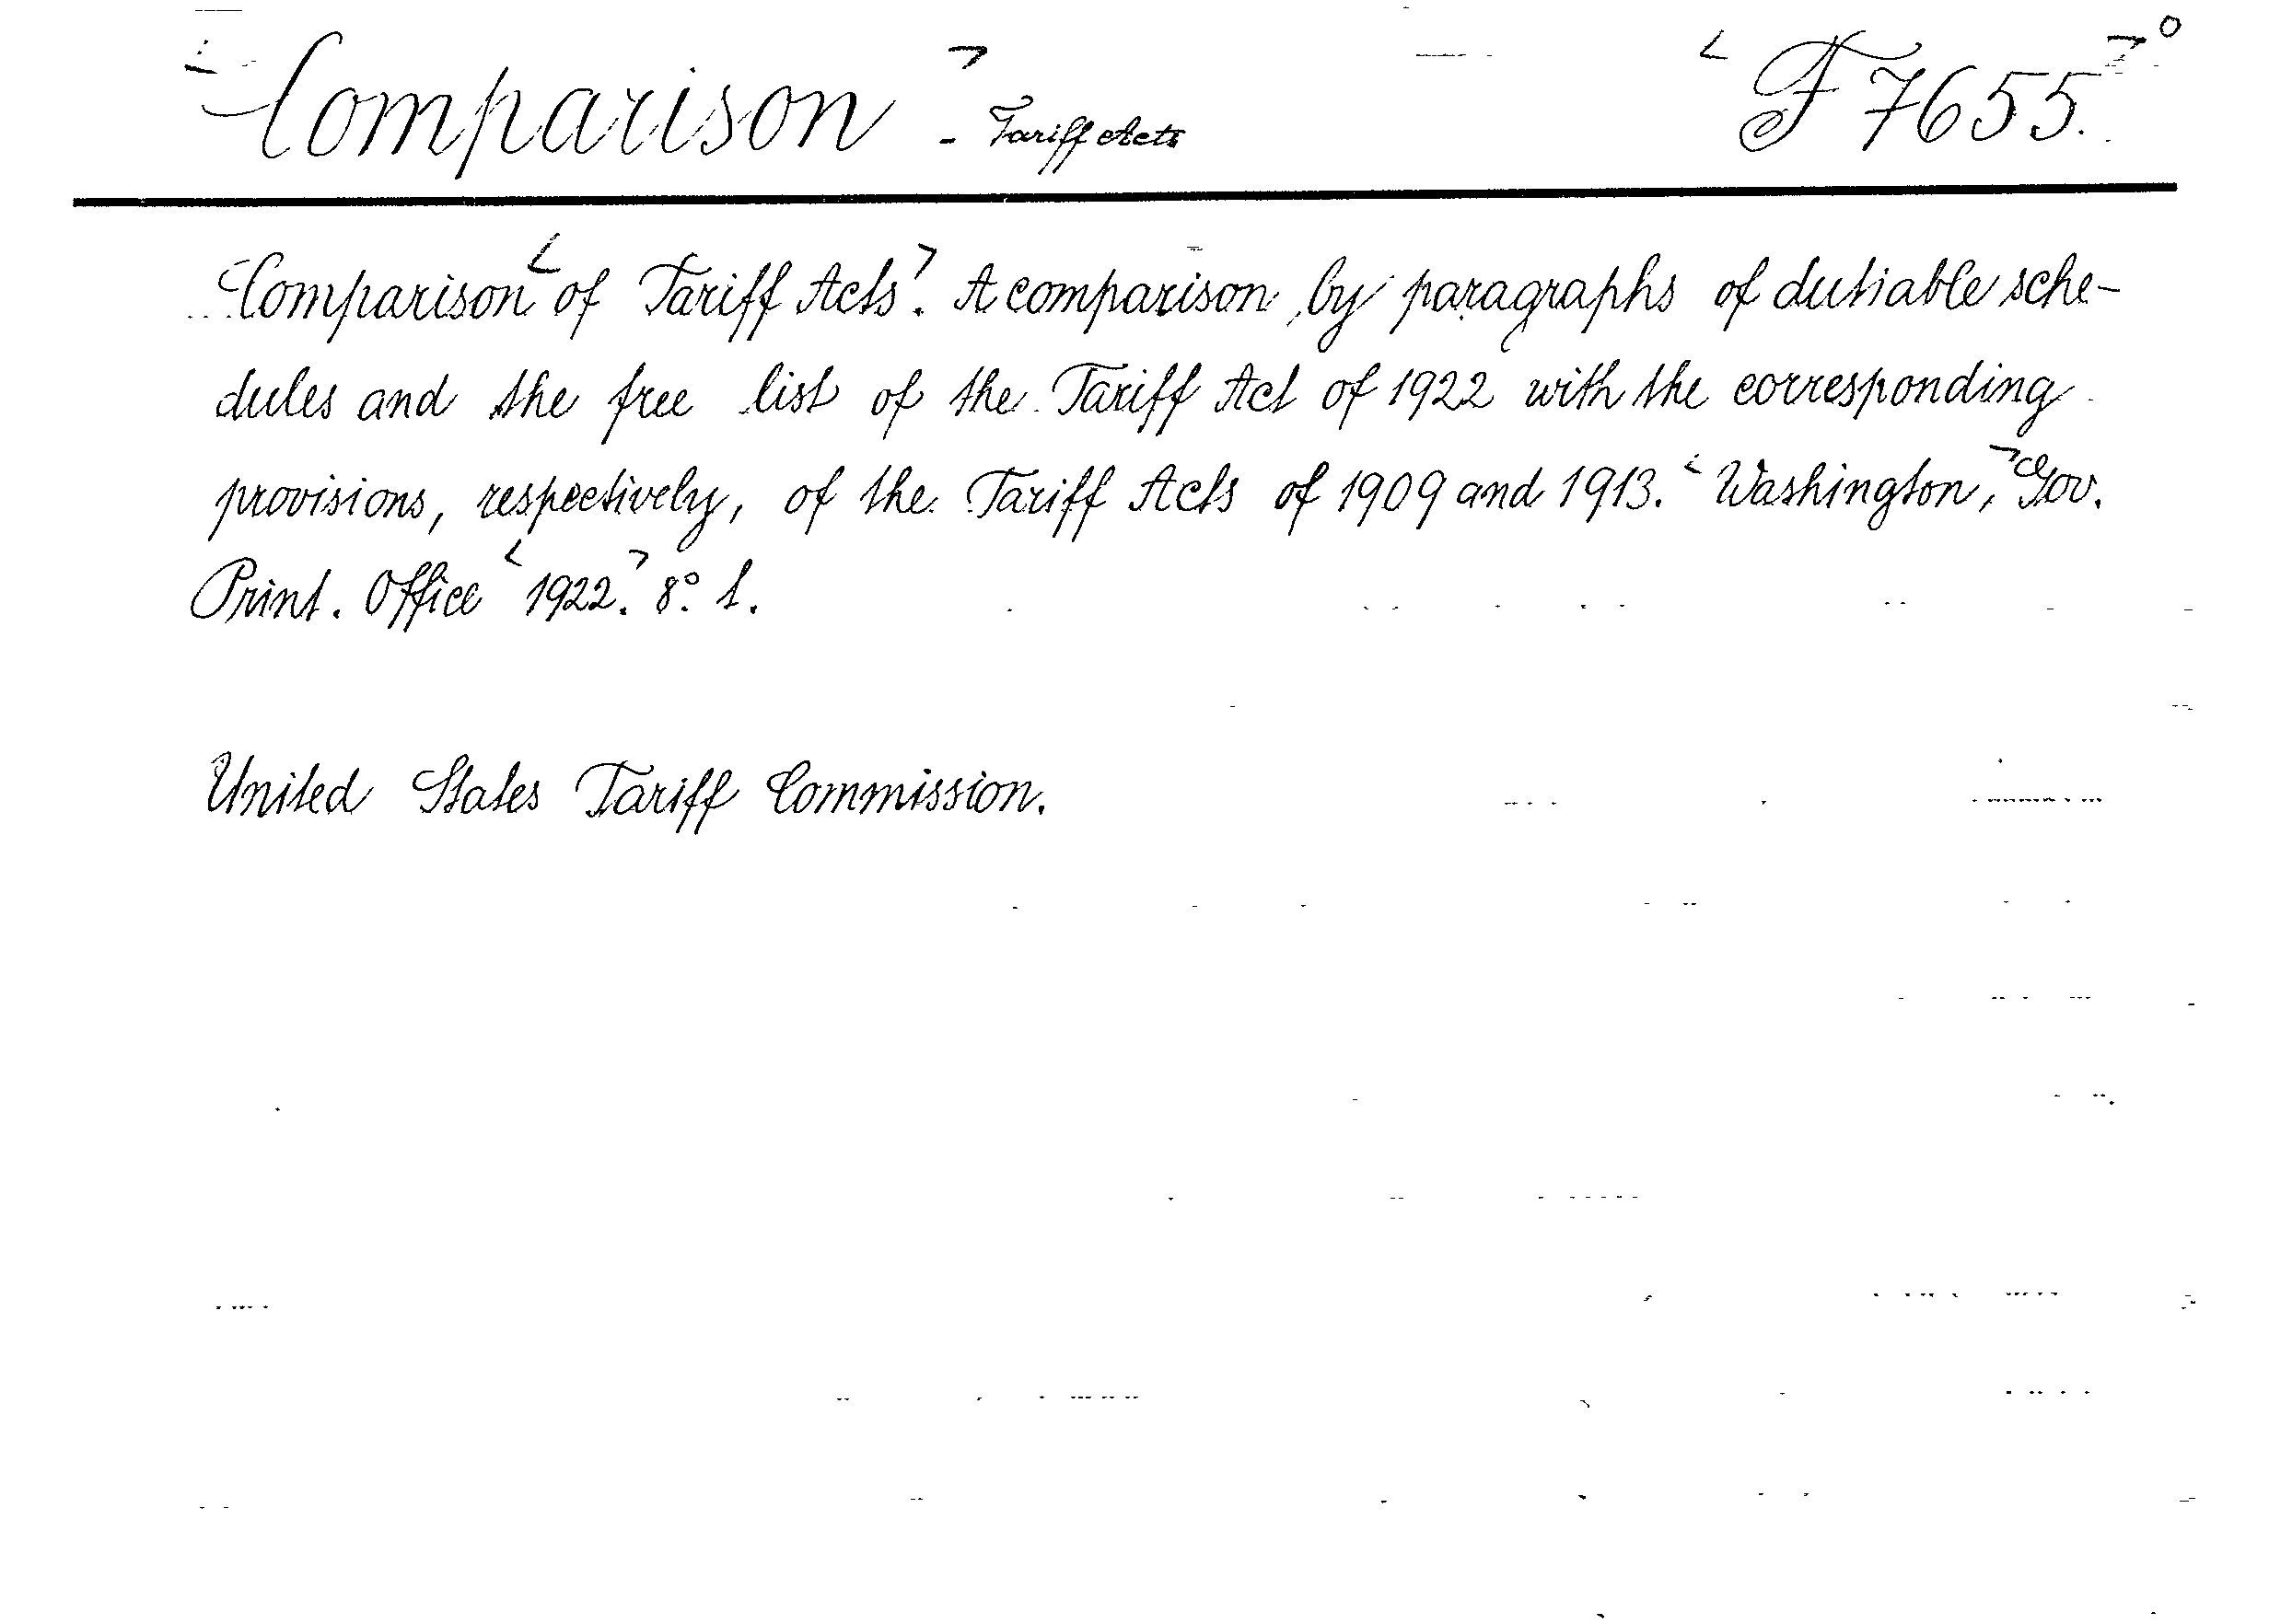 Comparison - Tariff Acts F 7655.
Comparison of Tariff Acts. A comparison, by paragraphs of dutiable sche-
dules and the free list of the Tariff Act of 1922 with the corresponding
provisions, respectively, of the Tariff Acts of 1909 and 1913. Washington, Gov.
Print. Office 1922. 8° 1.
United States Tariff Commission.